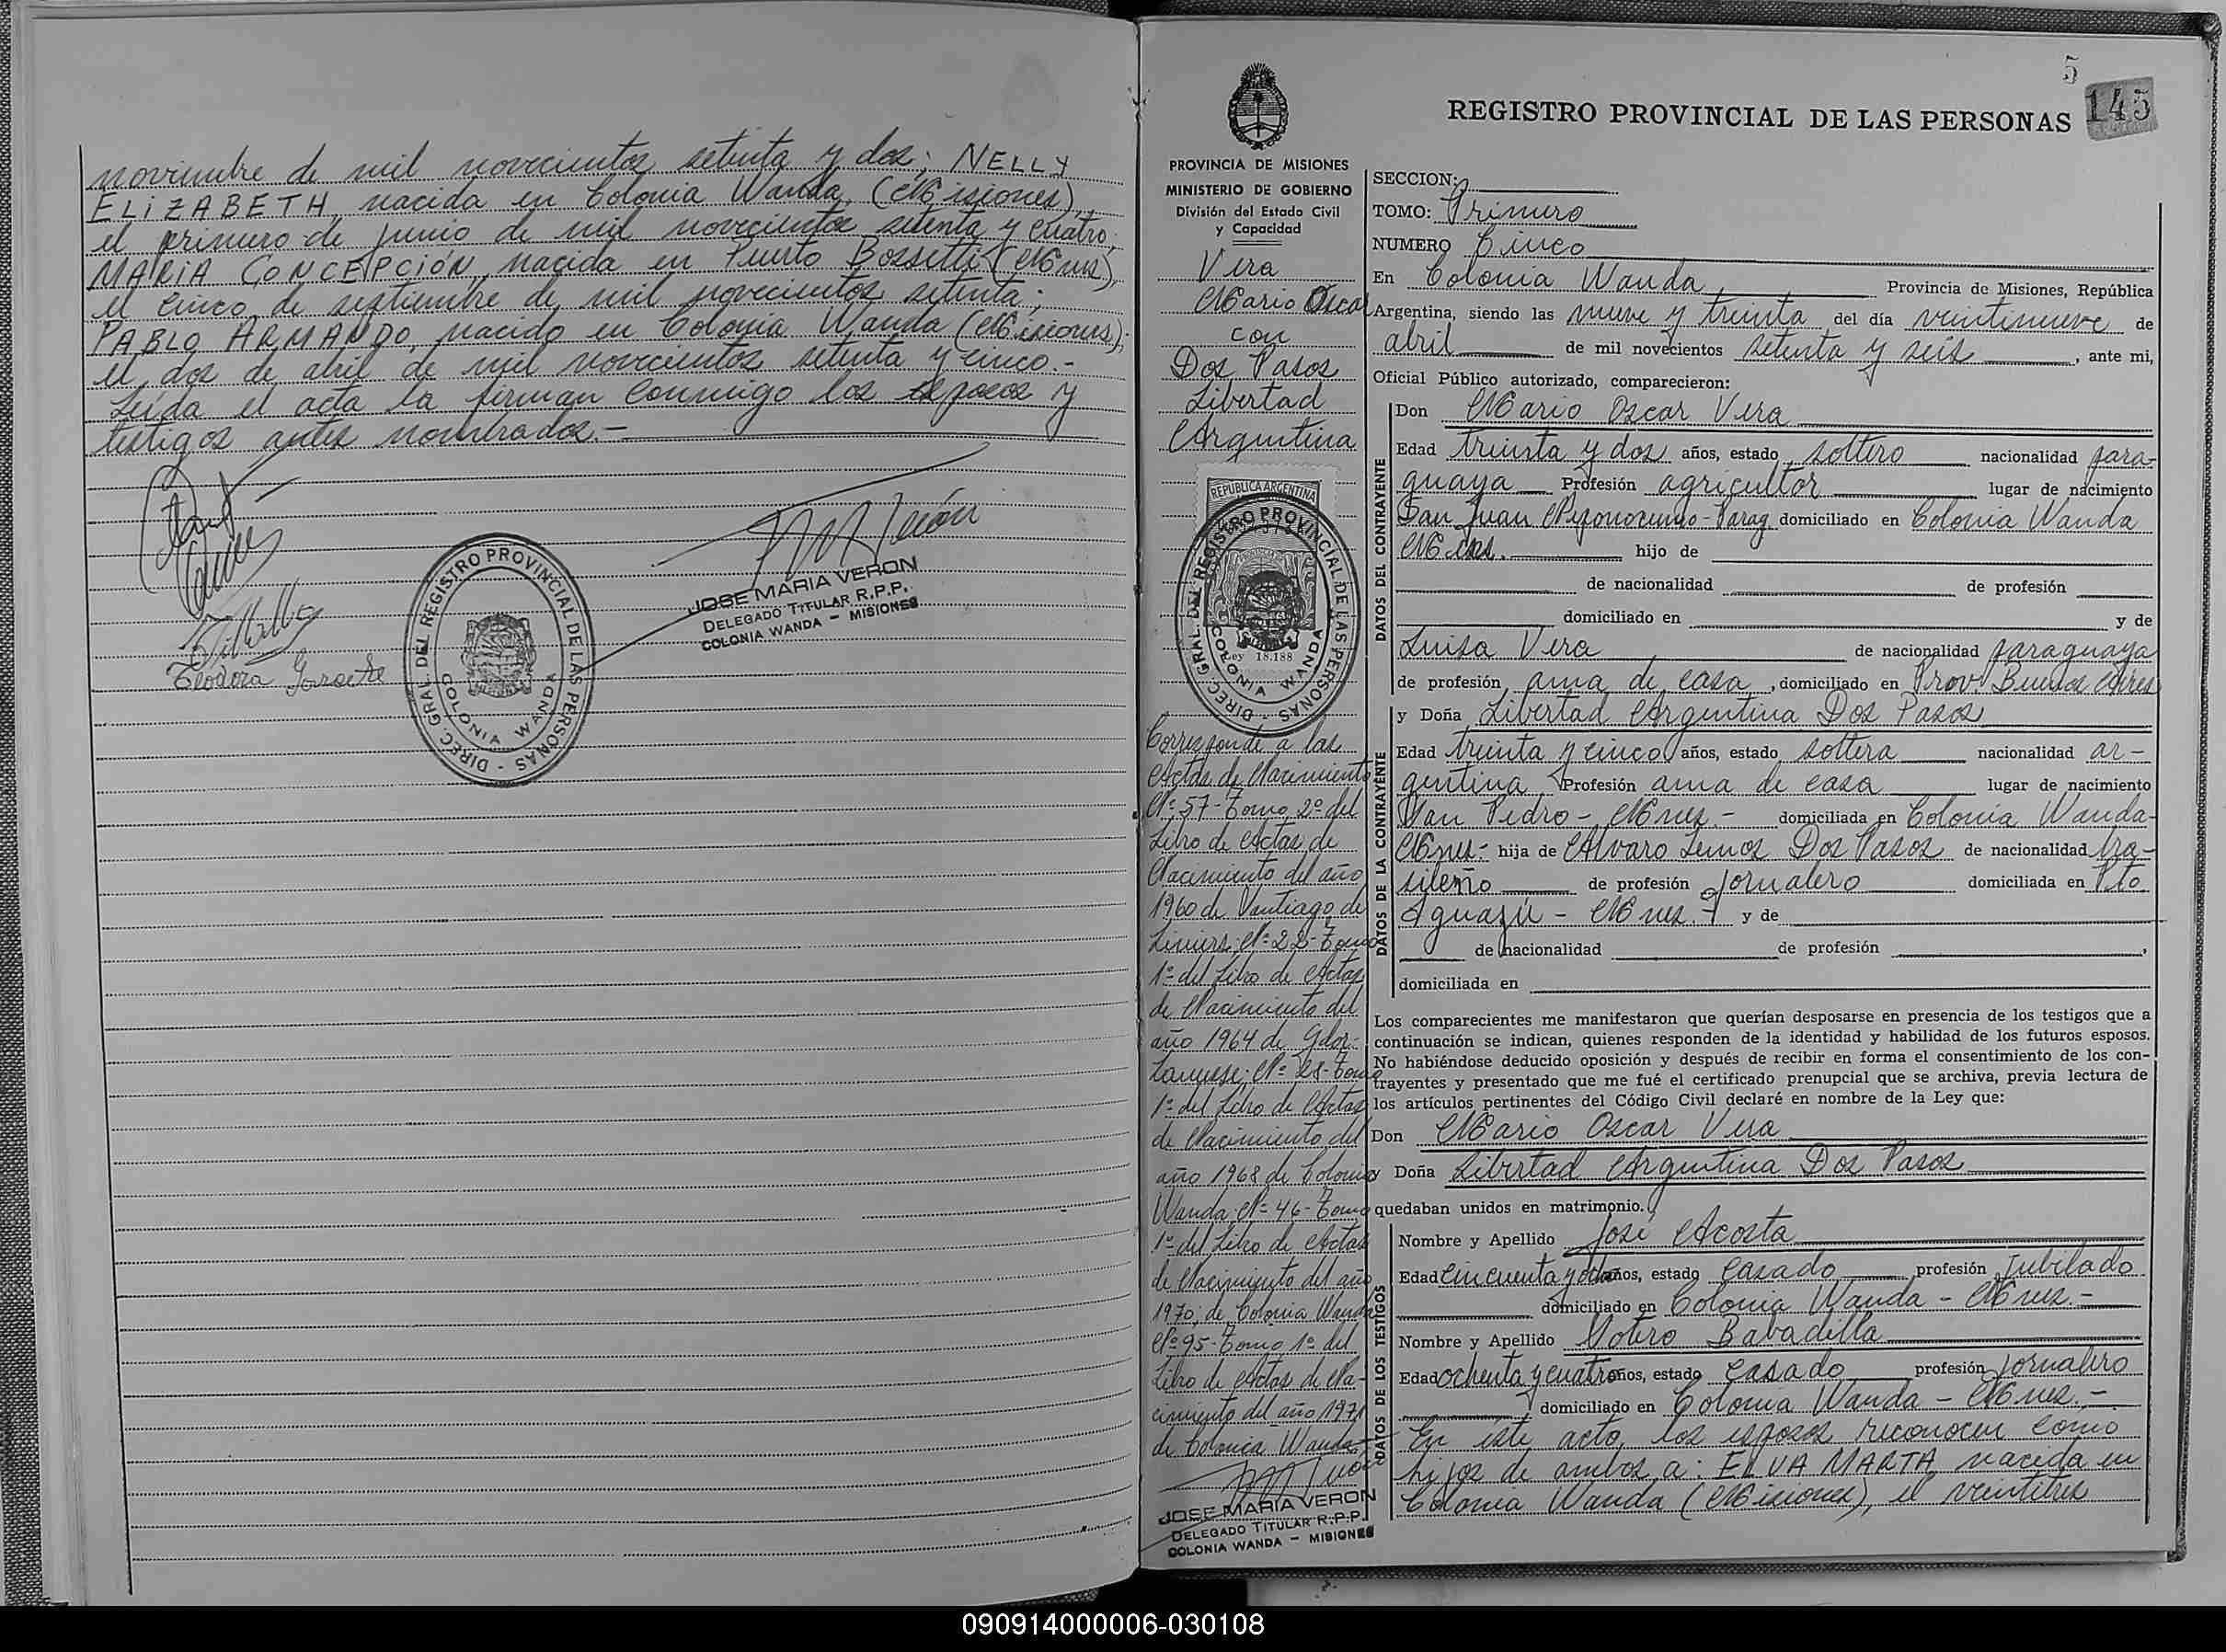 noviembre de mil novecientos setenta y dos; NELLY
ELIZABETH, nacida en Colonia Wanda, (Misiones),
el primero de junio de mil novecientos setenta y cuatro;
MARIA CONCEPCIÓN, nacida en Puerto Bossetti (Mnes),
el cinco de septiembre de mil novecientos setenta;
PABLO ARMANDO, nacido en Colonia Wanda (Misiones);
el dos de abril de mil novecientos setenta y cinco.-
Leída el acta la firman conmigo los esposos y
testigos antes nombrados.-
DIREC. GRAL. DEL REGISTRO PROVINCIAL DE LAS PERSONAS -
COLONIA WANDA
JOSE MARIA VERON
DELEGADO TITULAR R.P.P.
COLONIA WANDA - MISIONES
Teodora
5
145
REGISTRO PROVINCIAL DE LAS PERSONAS
PROVINCIA DE MISIONES
MINISTERIO DE GOBIERNO
División del Estado Civil
y Capacidad
Vera
Mario Oscar
con
Dos Pasos
Libertad
Argentina
REPUBLICA ARGENTINA
DIREC. GRAL. DEL REGISTRO PROVINCIAL DE LAS PERSONAS -
COLONIA WANDA
Ley 18.188
Corresponde a las
Actas de Nacimiento
Nº 57-Tomo 2º del
Libro de Actas de
Nacimiento del año
1960 de Santiago de
Liniers; Nº 22-Tomo
1º del Libro de Actas
de Nacimiento del
año 1964 de Gdor.
Lanusse; Nº 28-Tomo
1º del Libro de Actas
de Nacimiento del
año 1968 de Colonia
Wanda; Nº 46-Tomo
1º del Libro de Actas
de Nacimiento del año
1970; de Colonia Wanda
Nº 95-Tomo 1º del
Libro de Actas de Na-
cimiento del año 1971
de Colonia Wanda
JOSE MARIA VERON
DELEGADO TITULAR R.P.P.
COLONIA WANDA - MISIONES
SECCION:
TOMO: Primero
NUMERO Cinco
En Colonia Wanda Provincia de Misiones, República
Argentina, siendo las nueve y treinta del día veintinueve de
abril de mil novecientos setenta y seis, ante mi,
Oficial Público autorizado, comparecieron:
DATOS DEL CONTRAYENTE
Don Mario Oscar Vera
Edad treinta y dos años, estado soltero nacionalidad para-
guaya Profesión agricultor lugar de nacimiento
San Juan Nepomuceno-Parag. domiciliado en Colonia Wanda
Mnes. hijo de
de nacionalidad de profesión
domiciliado en y de
Luisa Vera de nacionalidad paraguaya
de profesión ama de casa, domiciliado en Prov. Buenos Aires
DATOS DE LA CONTRAYENTE
y Doña Libertad Argentina Dos Pasos
Edad treinta y cinco años, estado soltera nacionalidad ar-
gentina Profesión ama de casa lugar de nacimiento
San Pedro - Mnes.- domiciliada en Colonia Wanda-
Mnes.- hija de Alvaro Lemos Dos Pasos de nacionalidad bra-
sileño de profesión jornalero domiciliada en Pto
Iguazú - Mnes.- y de
de nacionalidad de profesión ,
domiciliada en
Los comparecientes me manifestaron que querían desposarse en presencia de los testigos que a
continuación se indican, quienes responden de la identidad y habilidad de los futuros esposos.
No habiéndose deducido oposición y después de recibir en forma el consentimiento de los con-
trayentes y presentado que me fué el certificado prenupcial que se archiva, previa lectura de
los artículos pertinentes del Código Civil declaré en nombre de la Ley que:
Don Mario Oscar Vera
y Doña Libertad Argentina Dos Pasos
quedaban unidos en matrimonio.
DATOS DE LOS TESTIGOS
Nombre y Apellido José Acosta
Edad cincuenta y ocho años, estado casado profesión Jubilado
domiciliado en Colonia Wanda - Mnes.-
Nombre y Apellido Sotero Babadilla
Edad ochenta y cuatro años, estado casado profesión jornalero
domiciliado en Colonia Wanda - Mnes.-
En este acto, los esposos reconocen como
hijos de ambos a: ELVA MARTA nacida en
Colonia Wanda (Misiones), el veintitres
090914000006-030108